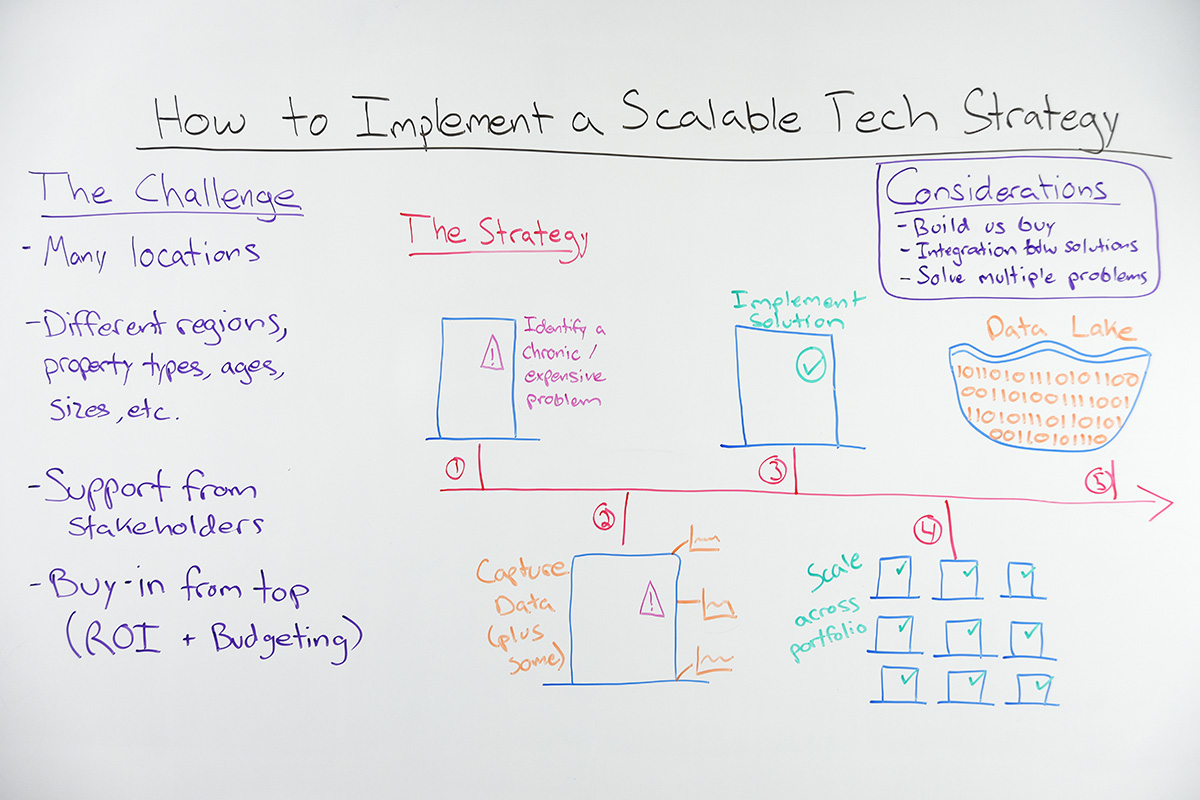 How to Implement a Scalable Tech Strategy
The Challenge
- Many locations
- Different regions,
property types, ages,
sizes, etc.
- Support from
stakeholders
- Buy-in from top
(ROI + Budgeting)
The Strategy
Considerations
- Build vs buy
- Integration btw solutions
- Solve multiple problems
①
Identify a
chronic /
expensive
problem
!
②
Capture
Data
(plus
some)
!
③
Implement
Solution
④
Scale
across
portfolio
⑤
Data Lake
10110101110101100
001101001111001
110101110110101
00110101110